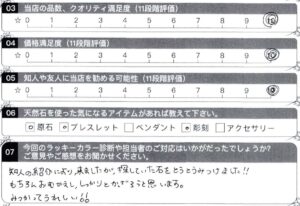 03 当店の品数、クオリティ満足度（11段階評価）
☆ 0 1 2 3 4 5 6 7 8 9 10
04 価格満足度（11段階評価）
☆ 0 1 2 3 4 5 6 7 8 9 10
05 知人や友人に当店を勧める可能性（11段階評価）
☆ 0 1 2 3 4 5 6 7 8 9 10
06 天然石を使った気になるアイテムがあれば教えて下さい。
原石 ブレスレット ペンダント 彫刻 アクセサリー
07 今回のラッキーカラー診断や担当者のご対応はいかがだったでしょうか？
ご意見やご感想をお聞かせください。
知人の紹介により、来ましたが、探していた石をとうとうみつけました!!
もちろんおむかえし、しっかりと
と思います。
みつかってうれしい